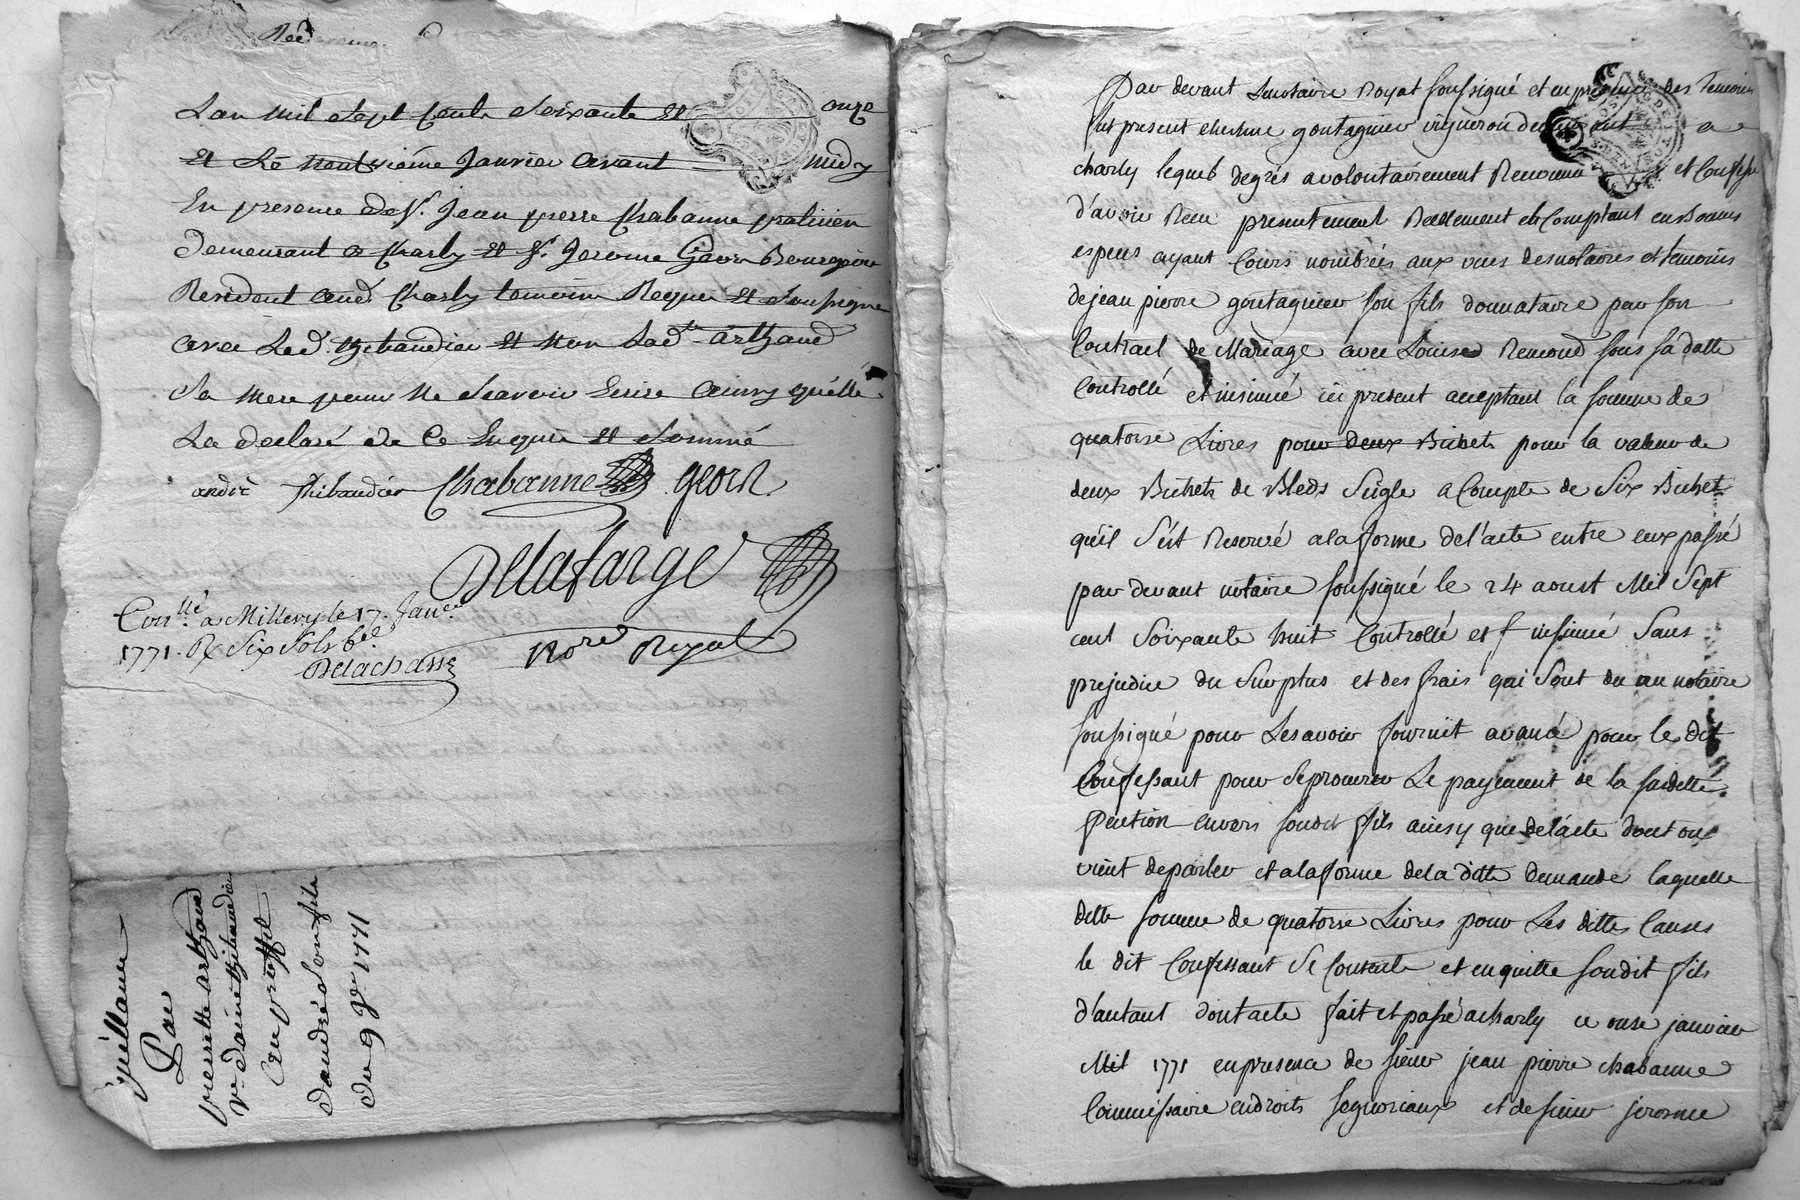 L'an mil Sept Cents Soixante Et onze
Et Le neufvieme Janvier avant midy
En presence de Sr. Jean pierre Chabanne praticien
demeurant a Charly Et Sr. Jerome Geoin Bourgeois
Resident aud. Charly temoins Requis Et Soussignes
avec Led. thibaudier Et non Lad.te arthaud
Sa mere pour ne Scavoir Ecrire ainsy quelle
La declaré de Ce Enquis Et Sommé
andré thibaudier Chabanne geoin
Delafarge
Con.llé a Millery le 17. Jan.er
1771. R Six Sols 6.d
Delachasse
No.re Royal
quittance
Par
pierrette arthaud
v.e daime thibaudier
au proffit
dandré Son fils
du 9 Jr. 1771
Par devant Lenotaire Royal soussigné et en presence des temoins
fut present etienne goutagnieu vigneron demeurant a
charly lequel degrès avolontairement Reconnu et Confesse
d'avoir Receu presentement Reellement et Comptant en Bonnes
especes ayant Cours nombrées aux vues desnotaires et temoins
dejean pierre goutagnieu son fils donnataire par son
Contract de Mariage avec Louise Remond sous sa datte
Controllé et insinué ici present acceptant la somme de
quatorse Livres pour deux Bichets pour la valeur de
deux Bichets de Bleds Seigle a Compte de Six Bichets
qu'il S'est Reservé alaforme del'acte entre eux passé
par devant notaire soussigné le 24 aoust Mil Sept
cent Soixante huit Controllé et insinué Sans
prejudice du Surplus et des frais qui Sont du au notaire
soussigné pour Lesavoir fournit avancé pour le dit
Confessant pour Seprocurer Le payement de la sudette
Pention envers sondit fils ainsy que delacte dont on
vient deparler et alaforme dela ditte demande laquelle
ditte somme de quatorse Livres pour Les dittes Causes
le dit Confessant Se Contente et enquitte sondit fils
d'autant dontacte fait et passé acharly ce onse janvier
Mil 1771 enpresence de sieur jean pierre chabanne
Commissaire endroits segnoriaux et desieur jerosme